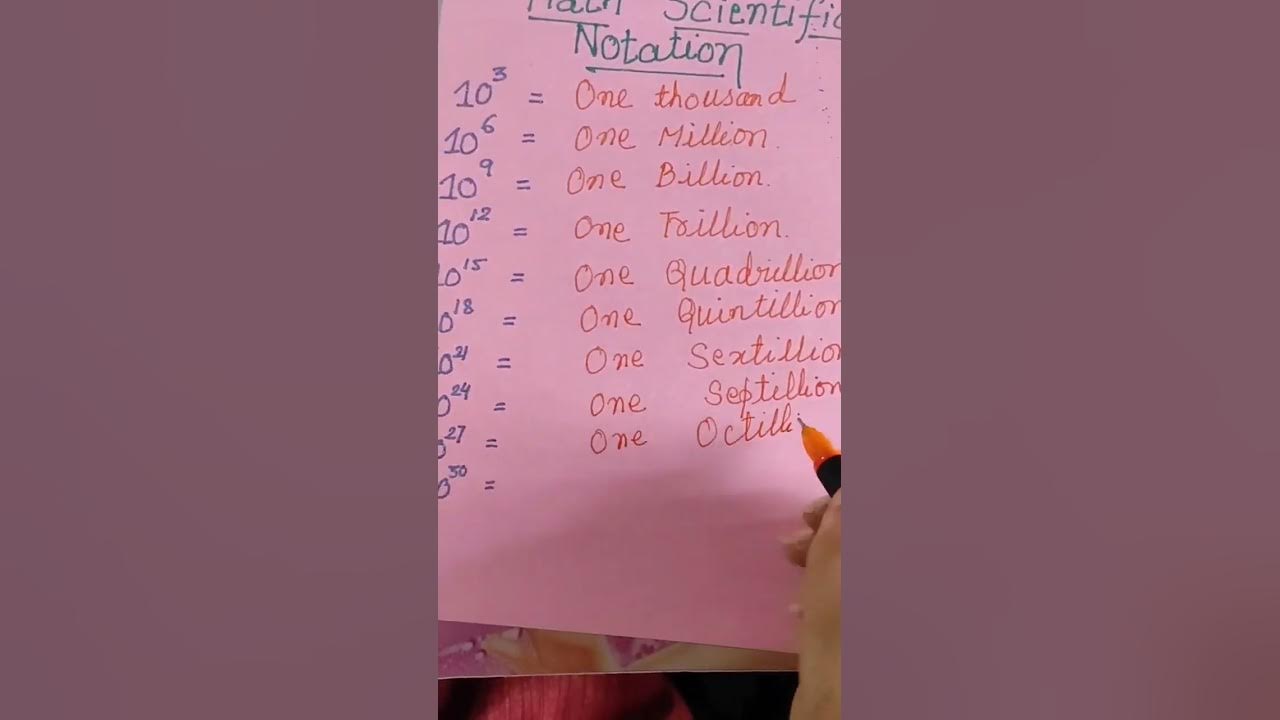 Math Scientific
Notation
10³ = One thousand
10⁶ = One Million.
10⁹ = One Billion.
10¹² = One Trillion.
10¹⁵ = One Quadrillion
0¹⁸ = One Quintillion
0²¹ = One Sextillion
0²⁴ = One Septillion
0²⁷ = One Octilli
0³⁰ =